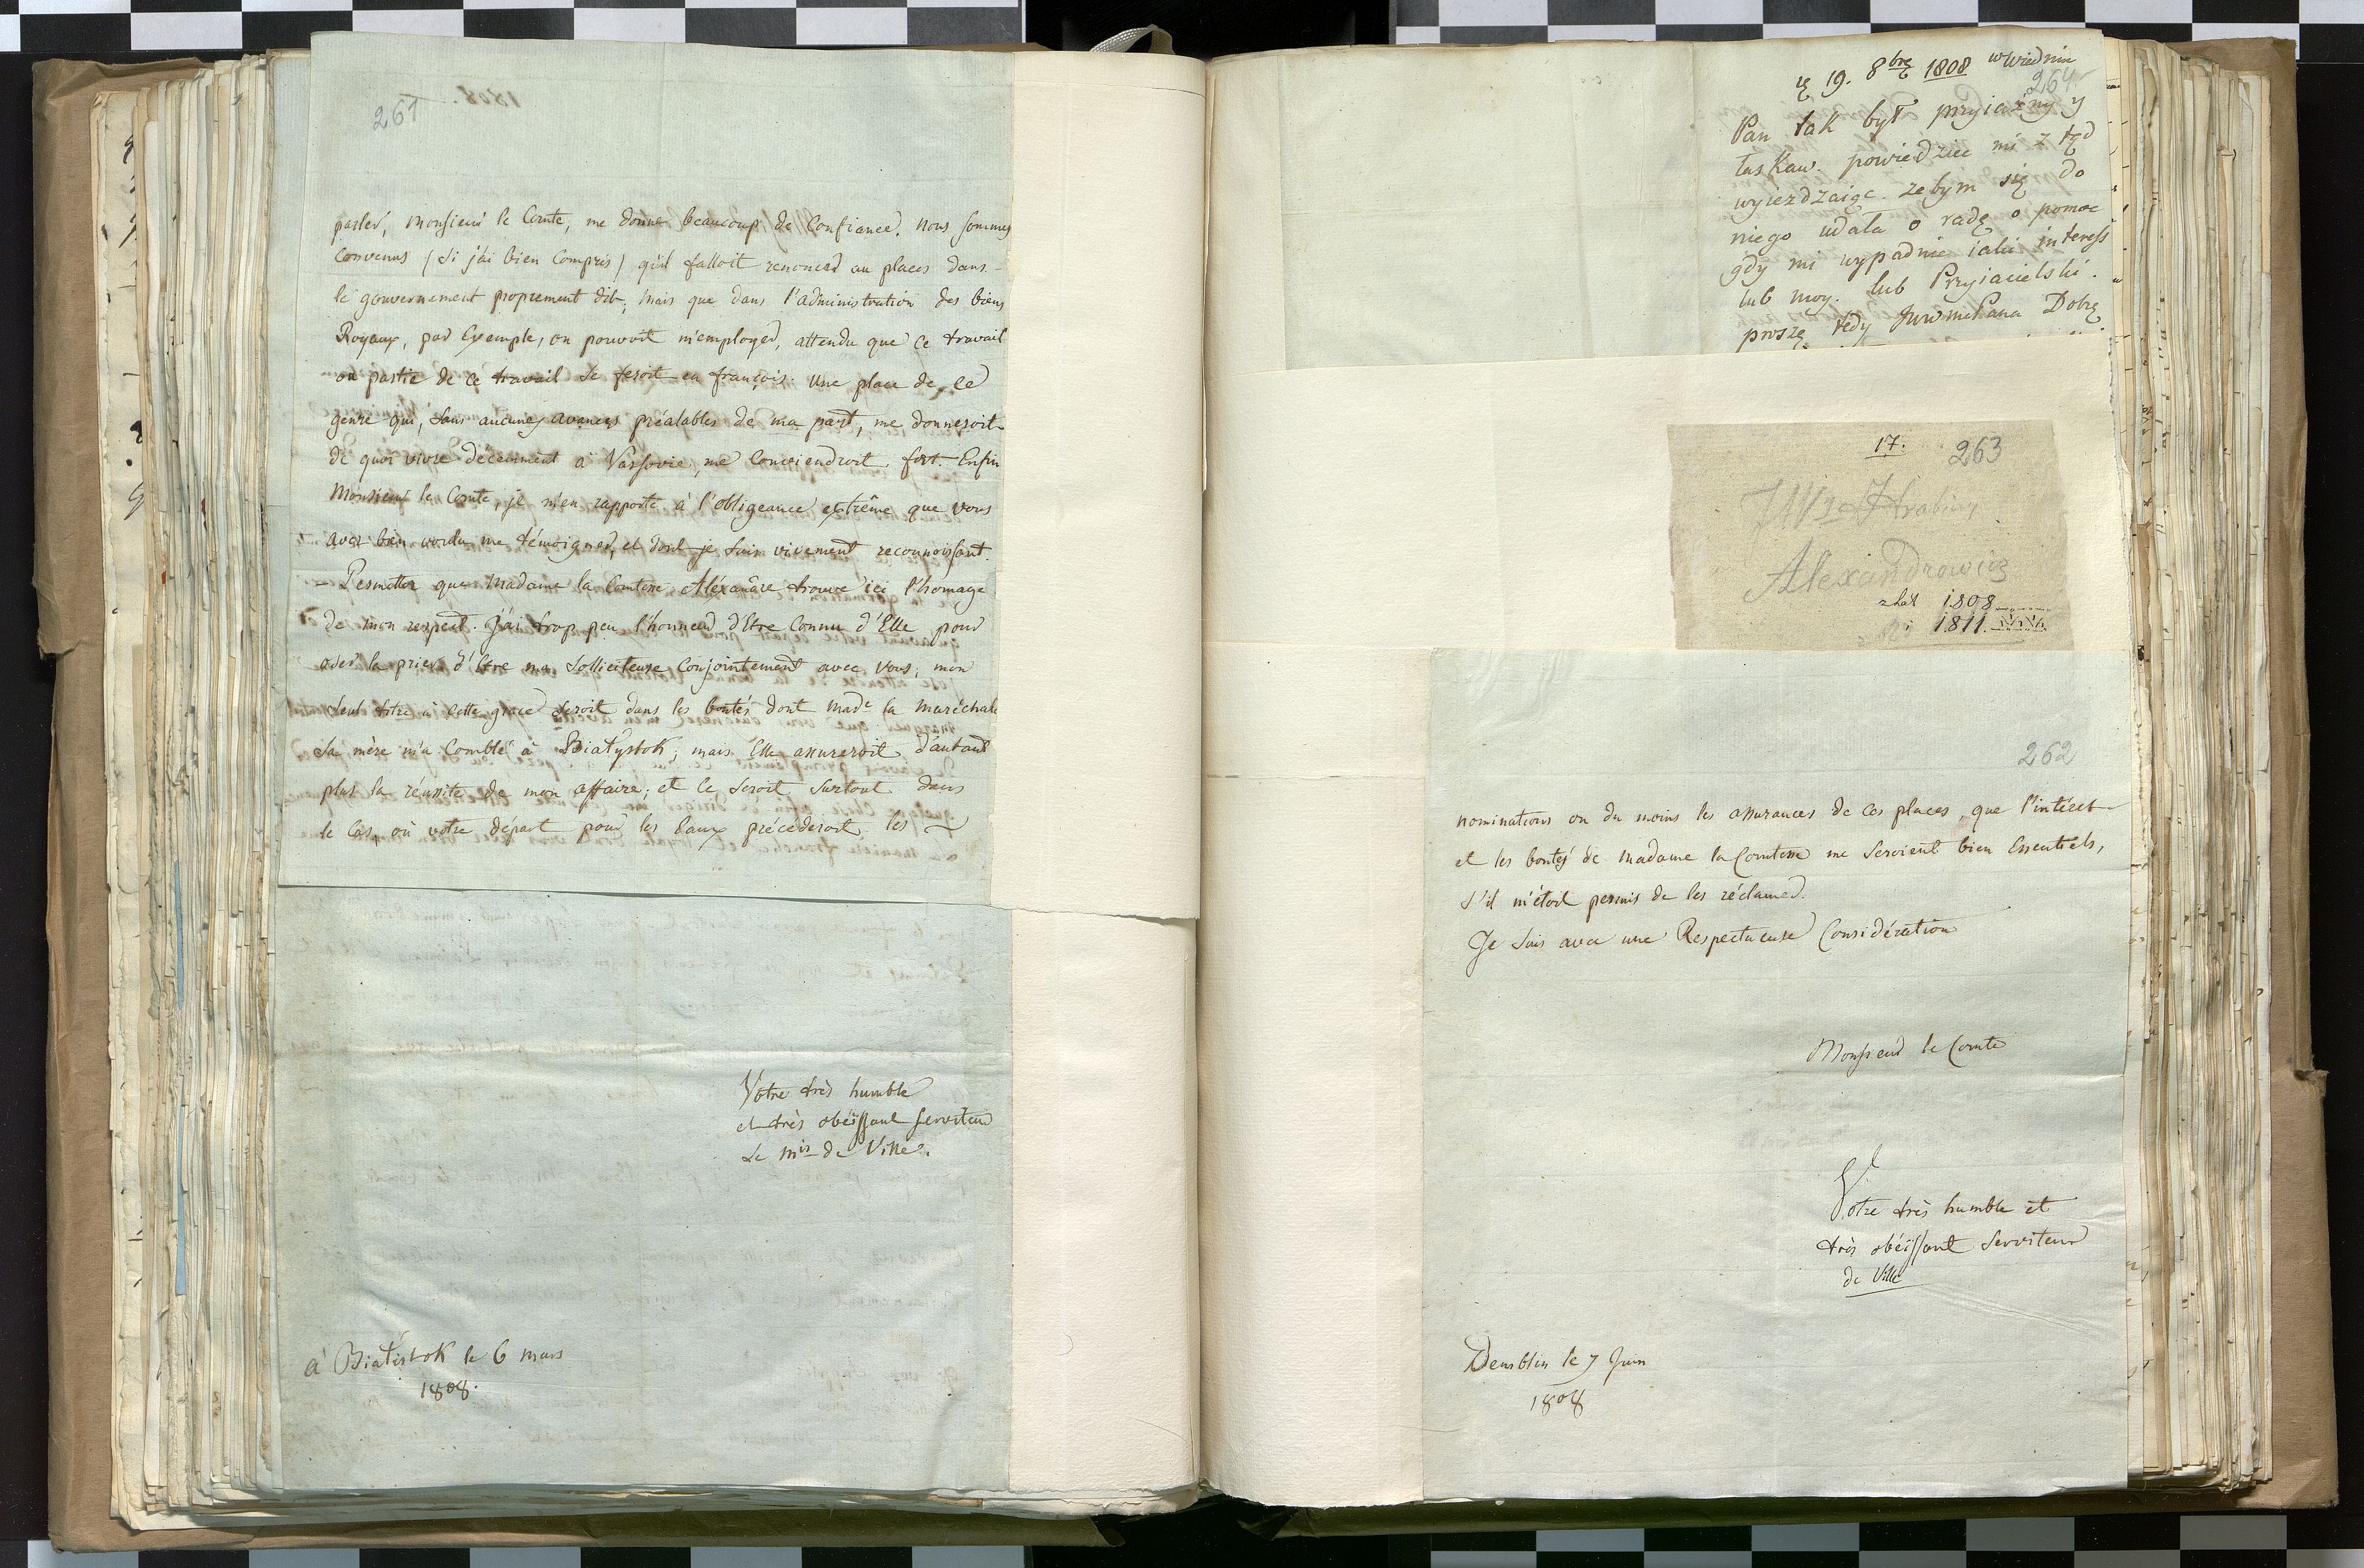 261
parler, Monsieur le Comte, me donne beaucoup de Confiance. nous sommes
Convenus (si j'ai bien Compris) qu'il falloit renoncer au places dans
le gouvernement proprement dit, mais que dans l'administration des biens
Royaux, par Exemple, on pouvoit m'employer, attendu que Ce travail
ou partie de Ce travail se feroit en françois. Une place de ce
genre qui, sans aucunes avances préalables de ma part, me donneroit
de quoi vivre décemment à Varsovie, me Conviendroit fort. Enfin
Monsieur le Comte, je m'en rapporte à l'obligeance extrême que vous
avez bien voulu me témoigner, et dont je suis vivement reconnoissant.
Permettez que Madame la Comtesse Aléxandre trouve ici l'homage
de mon respect. J'ai trop peu l'honneur d'Etre Connu d'Elle pour
oser la prier d'Etre ma Solliciteuse Conjointement avec Vous; mon
seul titre à Cette grace seroit dans les bontés dont Made la Maréchale
sa mère m'a Comblé à Białystok; mais Elle assureroit d'autant
plus la réussite de mon affaire; et Ce seroit surtout dans
le Cas, où votre départ pour les Eaux précéderoit les
Votre très humble
et très obéissant serviteur
Le Mis de Ville.
à Białistok le 6 mars
1808.
19. 8bre 1808 w Wiedniu
264
Pan tak był przyiaźny y
łaskaw. powiedziec mi z tąd
wyieżdzaiąc. zebym się do
niego udała o radę o pomoc
gdy mi wypadnie iaki interess
lub moy. lub Przyiacielski.
proszę tedy JWWMcPana Dobrę
17.
263
JWa Hrabiny
Alexandrowicz
1808
1811
262
nominations ou du moins les assurances de Ces places, que l'intéret
et les bontés de Madame la Comtesse me seroient bien Essentiels,
s'il m'étoit permis de les réclamer.
Je suis avec une Respectueuse Considération
Monsieur le Comte
Votre très humble et
très obéissant serviteur
de Ville
Demblin le 7 Juin
1808